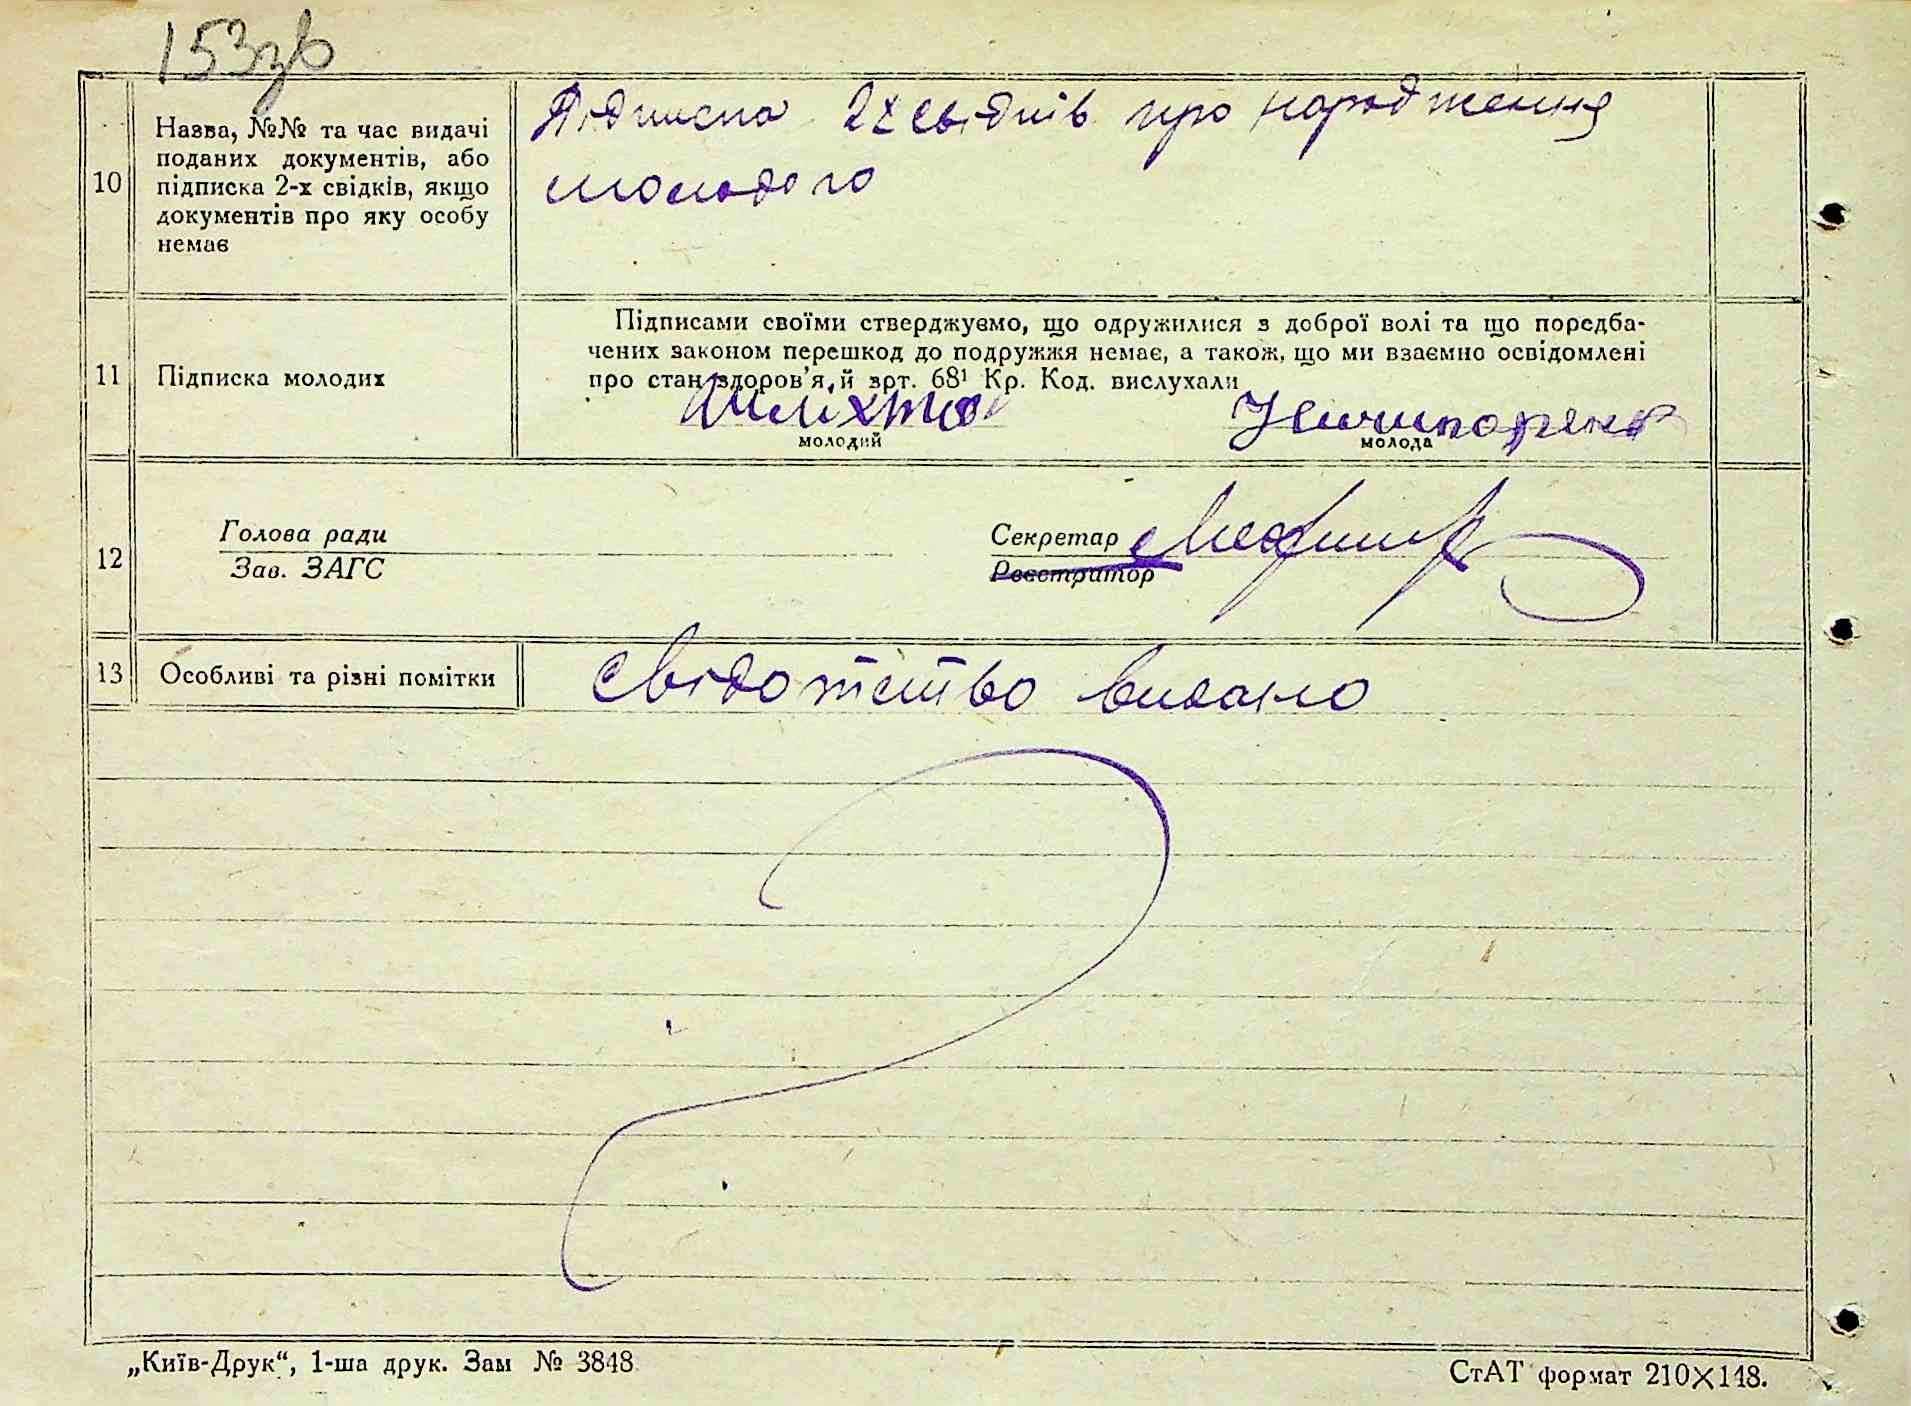 153зв
10
Назва, №№ та час видачі
поданих документів, або
підписка 2-х свідків, якщо
документів про яку особу
немає
Підписка 2х свідків про народження
молодого
11
Підписка молодих
Підписами своїми стверджуємо, що одружилися з доброї волі та що передба-
чених законом перешкод до подружжя немає, а також, що ми взаємно освідомлені
про стан здоров'я, й арт. 68¹ Кр. Код. вислухали
Шляхта
молодий
Ничипоренк
молода
12
Голова ради
Зав. ЗАГС
Секретар
Реєстратор
13
Особливі та різні помітки
Свідотство видано
„Київ-Друк“, 1-ша друк. Зам № 3848
СтАТ формат 210×148.